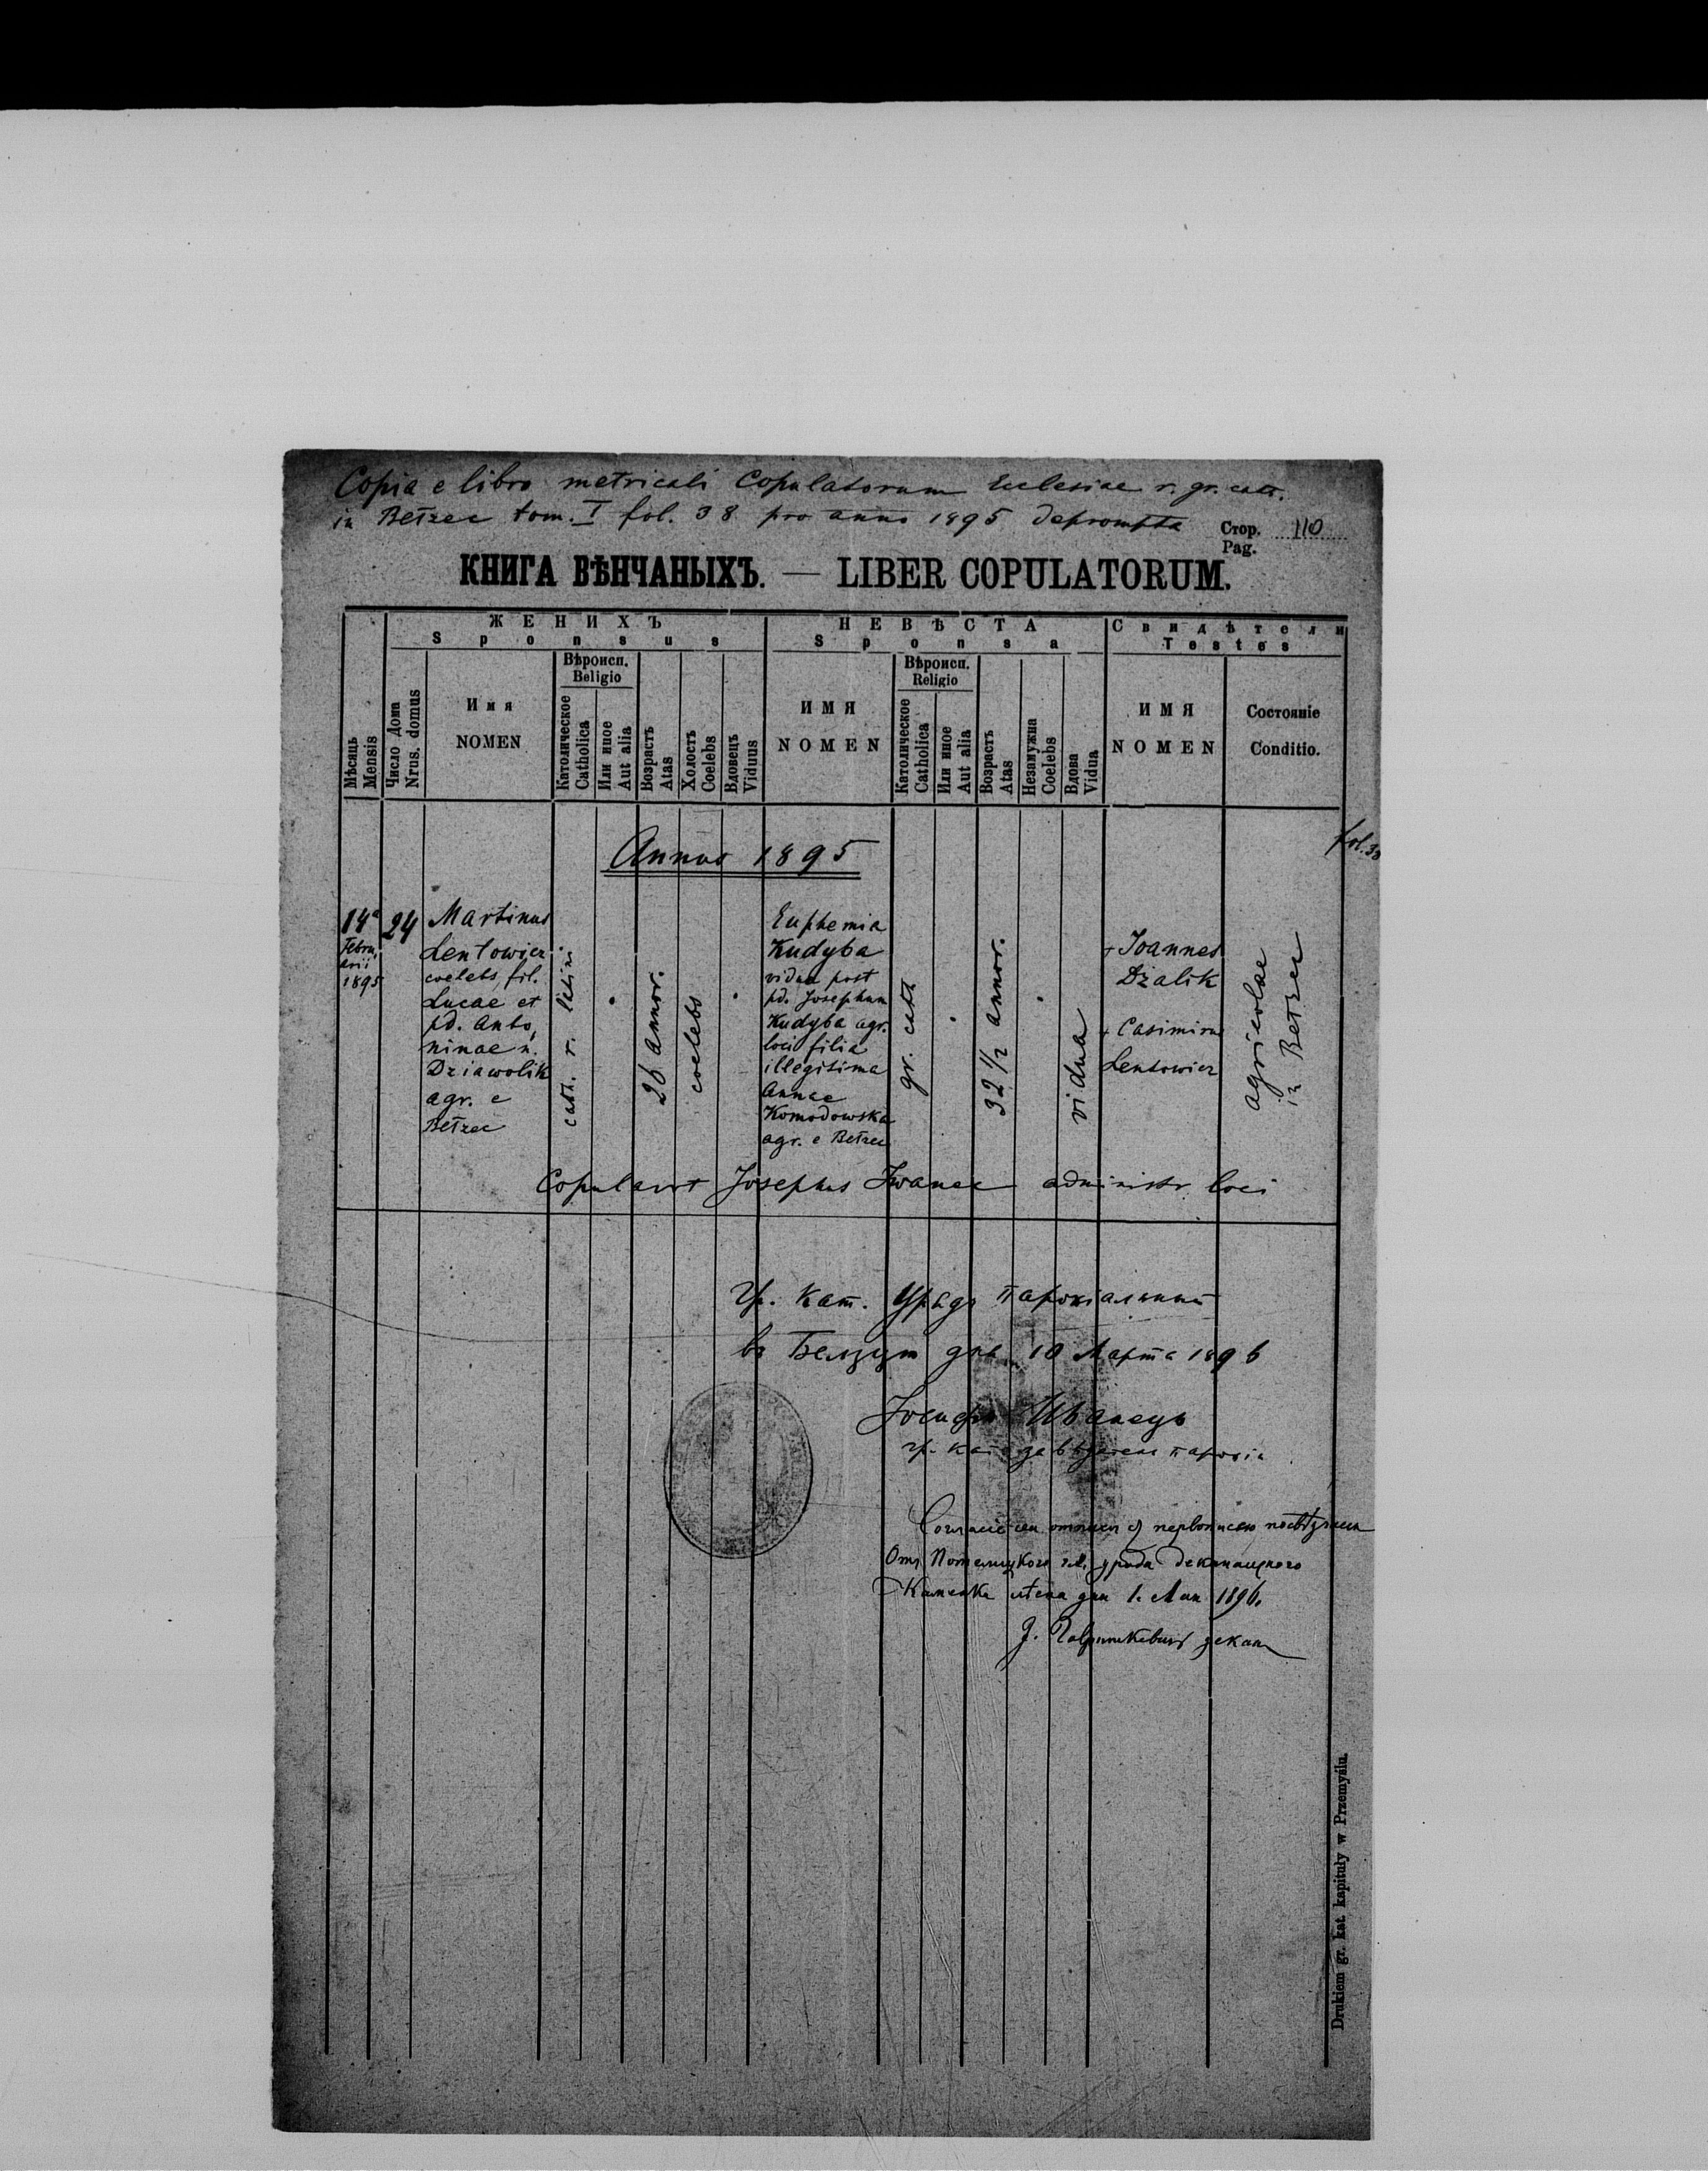 Copia e libro metricali Copulatorum Ecclesiae r. gr. cath.
in Bełzec tom. I fol. 38 pro anno 1895 deprompta
Стор. 110
Pag.
КНИГА ВѢНЧАНЫХЪ. — LIBER COPULATORUM.
Мѣсяць
Mensis
Число Дома
Nrus. domus
ЖЕНИХЪ
Sponsus
Имя
NOMEN
Вѣроисп.
Beligio
Католическое
Catholica
Или иное
Aut alia
Возрастъ
Atas
Холостъ
Coelebs
Вдовецъ
Viduus
НЕВѢСТА
Sponsa
ИМЯ
NOMEN
Вѣроисп.
Religio
Католическое
Catholica
Или иное
Aut alia
Возрастъ
Atas
Незамужна
Coelebs
Вдова
Vidua
Свидѣтели
Testes
ИМЯ
NOMEN
Состояніе
Conditio.
Annus 1895
fol. 38
14a
Febru,
arii
1895
24
Martinus
Lentowicz
coelebs, fil.
Lucae et
pd. Anto,
ninae n.
Dziawolik
agr. e
Bełzec
cath. r. latini.
26 annor.
coelebs
Euphemia
Kudyba
vidua post
pd. Josephum
Kudyba agr.
loci filia
illegitima
Annae
Komodowska
agr. e Bełzec
gr. cath
32 1/2 annor.
vidua
+ Joannes
Dżalik
+ Casimirus
Lentowicz
agricolae
in Bełzec
Copulavit Josephus Iwanec administr loci
Гр. Кат. Урядъ парохіальный
въ Белзци дня 10 Марта 1896
Іосифъ Иванець
гр. кат завѣдатель парохіи
Согласіе сеи отписи съ первописею посвѣдчаеся
Отъ Потелицкого гк. уряда деканацкого
Каменка дня 1. Мая 1896.
декан
Drukiem gr. kat. kapituły w Przemyślu.